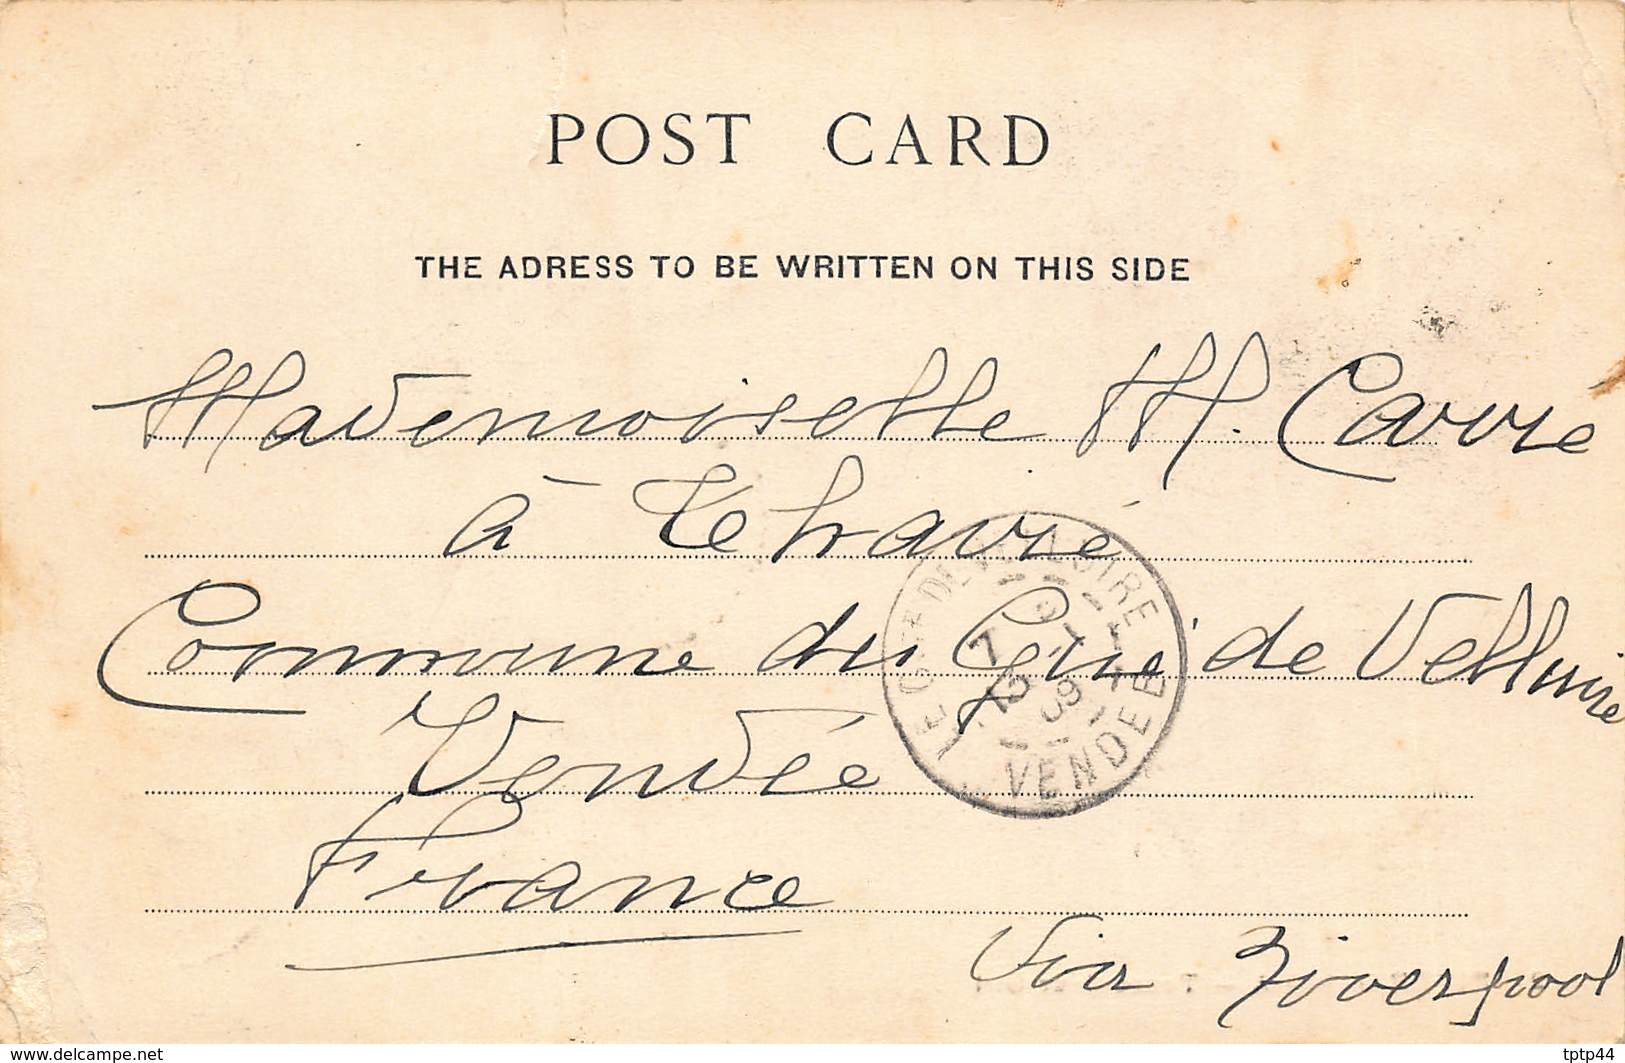 POST CARD
THE ADRESS TO BE WRITTEN ON THIS SIDE
Mademoiselle M. Carré
à
Commune du Gué de Velluire
Vendée
France
Via Liverpool
LOIRE
7 09
VENDEE
www.delcampe.net
tptp44